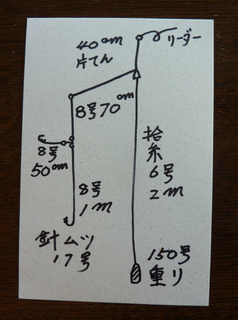 40cm
片てん
リーダー
8号70cm
8号
50cm
8号
1m
針ムツ
17号
捨
糸
6
号
2
m
150号
重リ